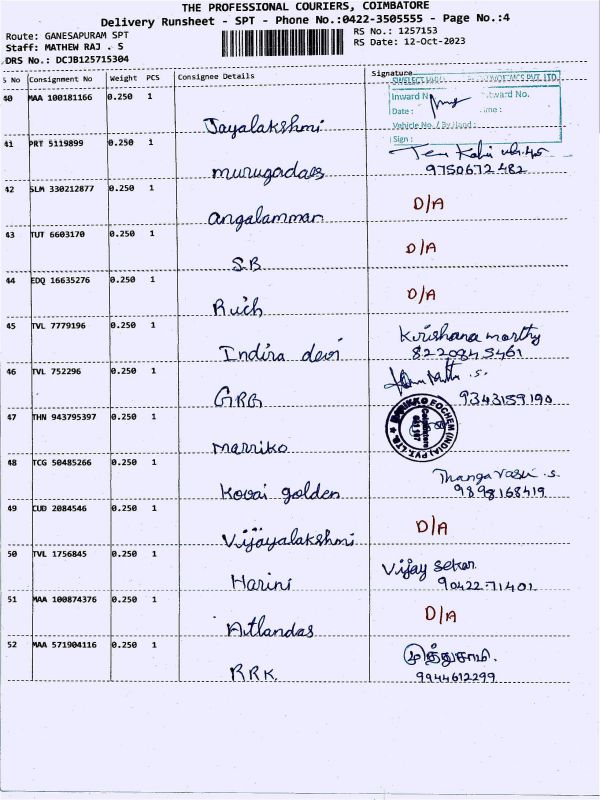 THE PROFESSIONAL COURIERS, COIMBATORE
Delivery Runsheet - SPT - Phone No.:0422-3505555 - Page No.:4
Route: GANESAPURAM SPT RS No.: 1257153
Staff: MATHEW RAJ . S RS Date: 12-Oct-2023
DRS No.: DCJB125715304
S No Consignment No Weight PCS Consignee Details Signature
40 MAA 100181166 0.250 1 Jayalakshmi
Inward No.
Date :
Vehicle No. / By Hand :
Sign :
41 PRT 5119899 0.250 1 murugadaes
9750672482
42 SLM 330212877 0.250 1 angalamman D/A
43 TUT 6603170 0.250 1 S.B D/A
44 EDQ 16635276 0.250 1 Ruch D/A
45 TVL 7779196 0.250 1 Indira devi Krishana morthy
8220843461
46 TVL 752296 0.250 1 GRB
9343159190
47 THN 943795397 0.250 1 marriko
48 TCG 50485266 0.250 1 Kovai golden Thangavasu .s
9898168419
49 CUD 2084546 0.250 1 Vijayalakshmi D/A
50 TVL 1756845 0.250 1 Harini Vijay Sekar
90422-71401
51 MAA 100874376 0.250 1 Atlandas D/A
52 MAA 571904116 0.250 1 RRK முத்துசாமி.
9944612299